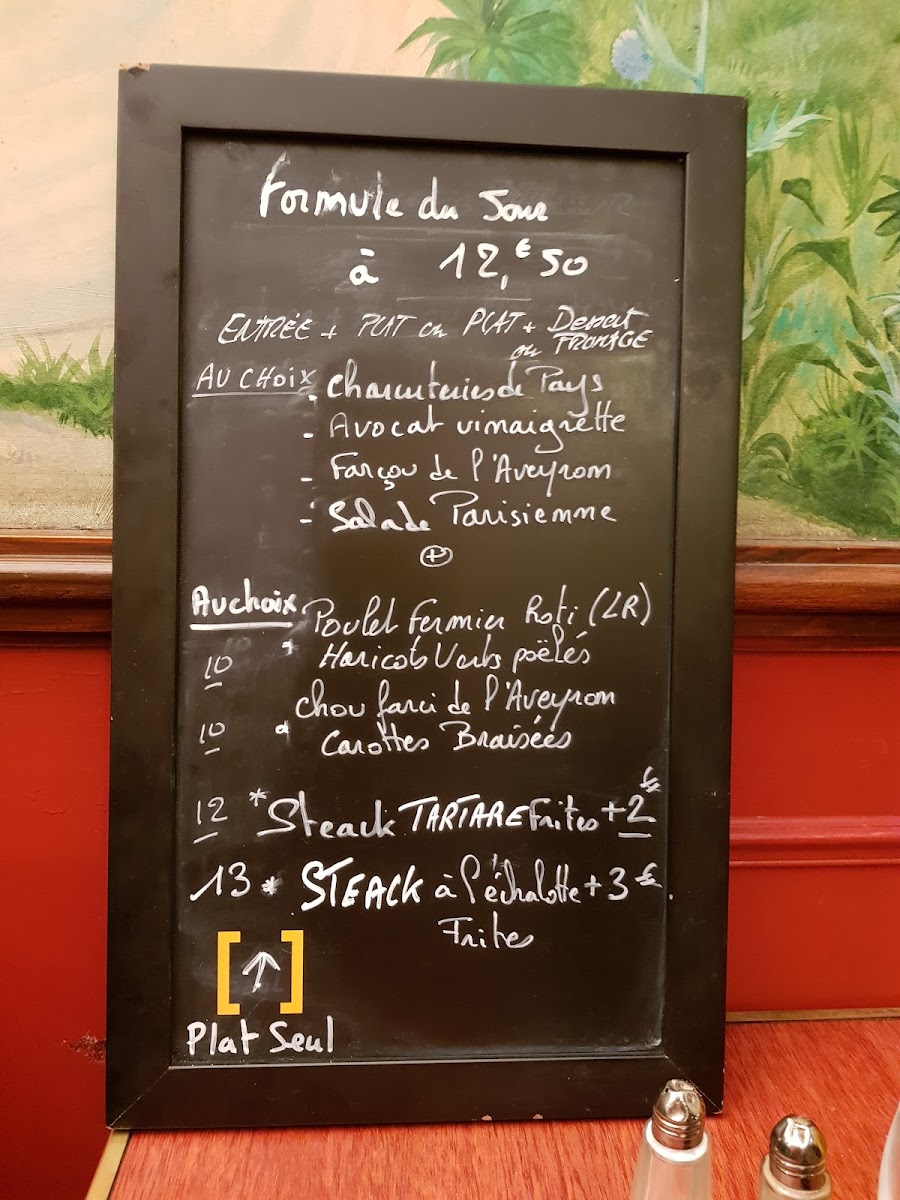 Formule du Jour
à 12,€50
ENTRÉE + PLAT ou PLAT + Dessert
ou FROMAGE
AU CHOIX - Charcuteries de Pays
- Avocat vinaigrette
- Farçou de l'Aveyron
- Salade Parisienne
+
Au choix * Poulet Fermier Roti (LR)
10 Haricots Verts poëlés
chou farci de l'Aveyron
10 * Carottes Braisées
12 * Steack TARTARE Frites +2€
13 * STEACK à l'échalotte +3€
Frites
[↑]
Plat Seul